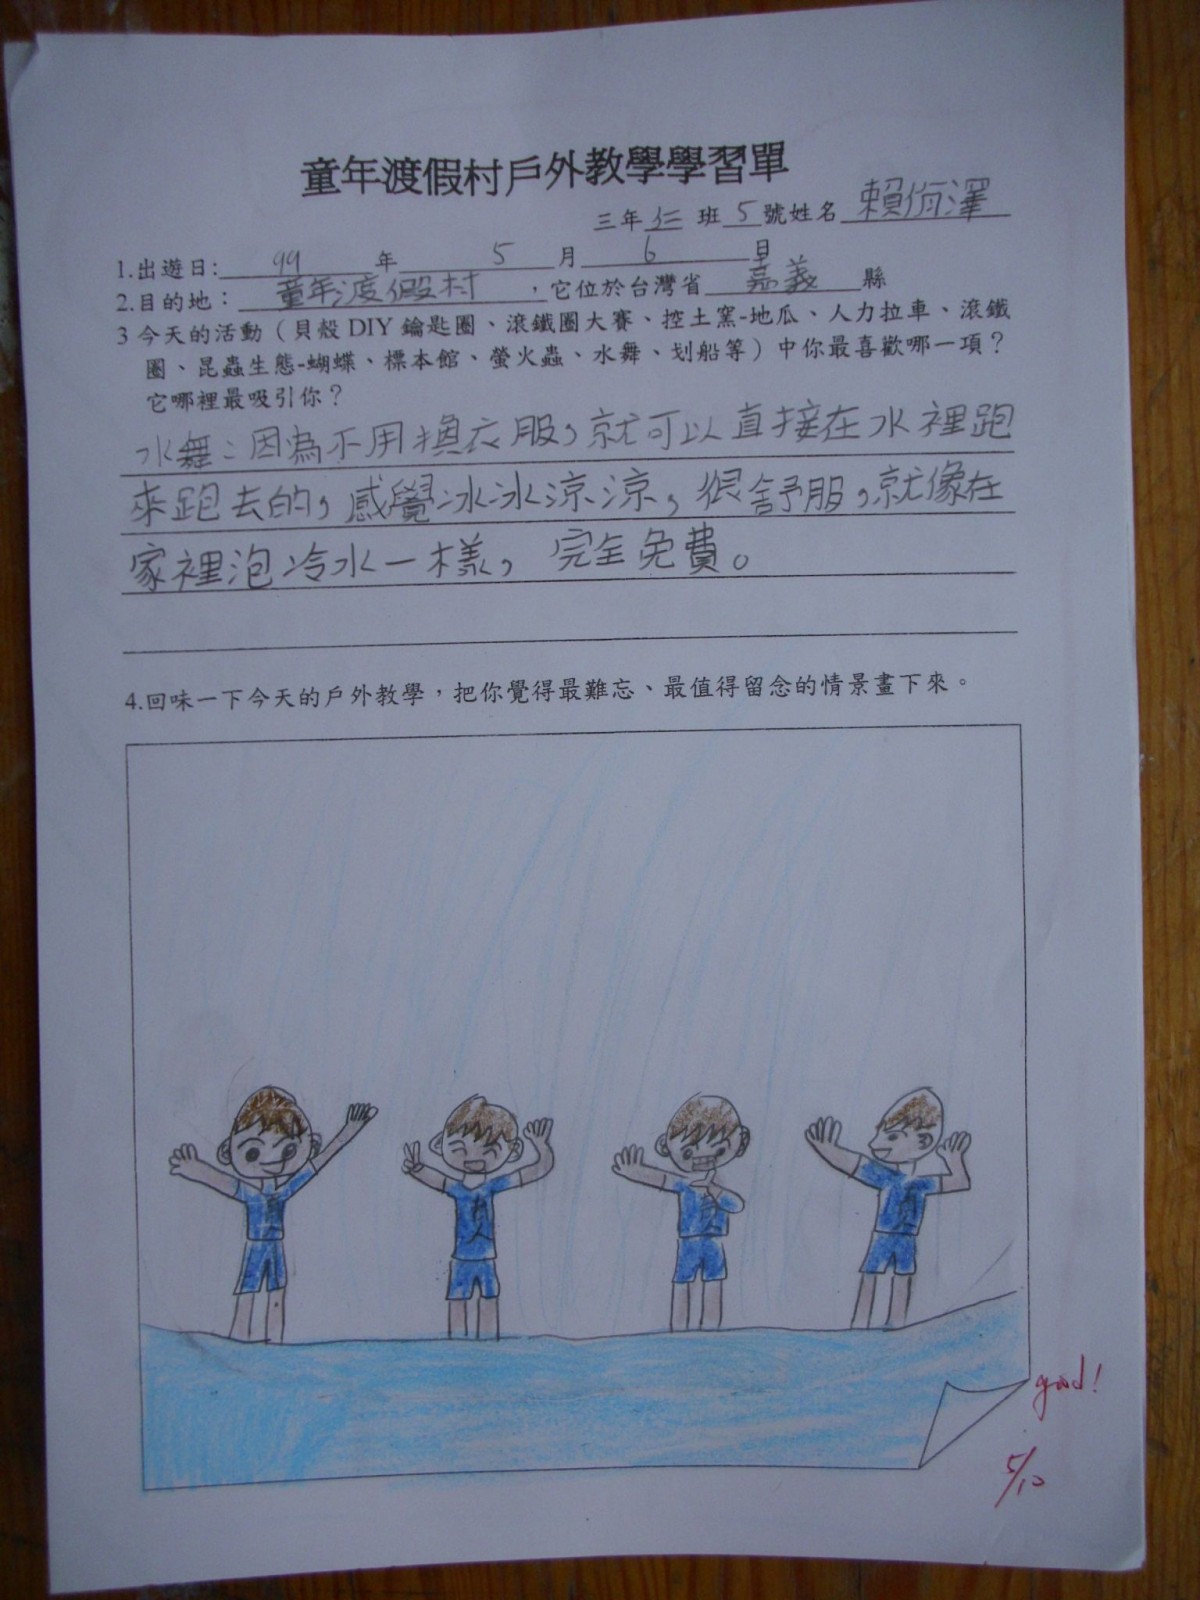 童年渡假村戶外教學學習單
三年仁班5號姓名賴侑澤
1.出遊日:99年5月6日
2.目的地：童年渡假村，它位於台灣省嘉義縣
3 今天的活動（貝殼 DIY 鑰匙圈、滾鐵圈大賽、控土窯-地瓜、人力拉車、滾鐵
圈、昆蟲生態-蝴蝶、標本館、螢火蟲、水舞、划船等）中你最喜歡哪一項？
它哪裡最吸引你？
水舞：因為不用換衣服，就可以直接在水裡跑
來跑去的，感覺冰冰涼涼，很舒服，就像在
家裡泡冷水一樣，完全免費。
4.回味一下今天的戶外教學，把你覺得最難忘、最值得留念的情景畫下來。
good!
5/10